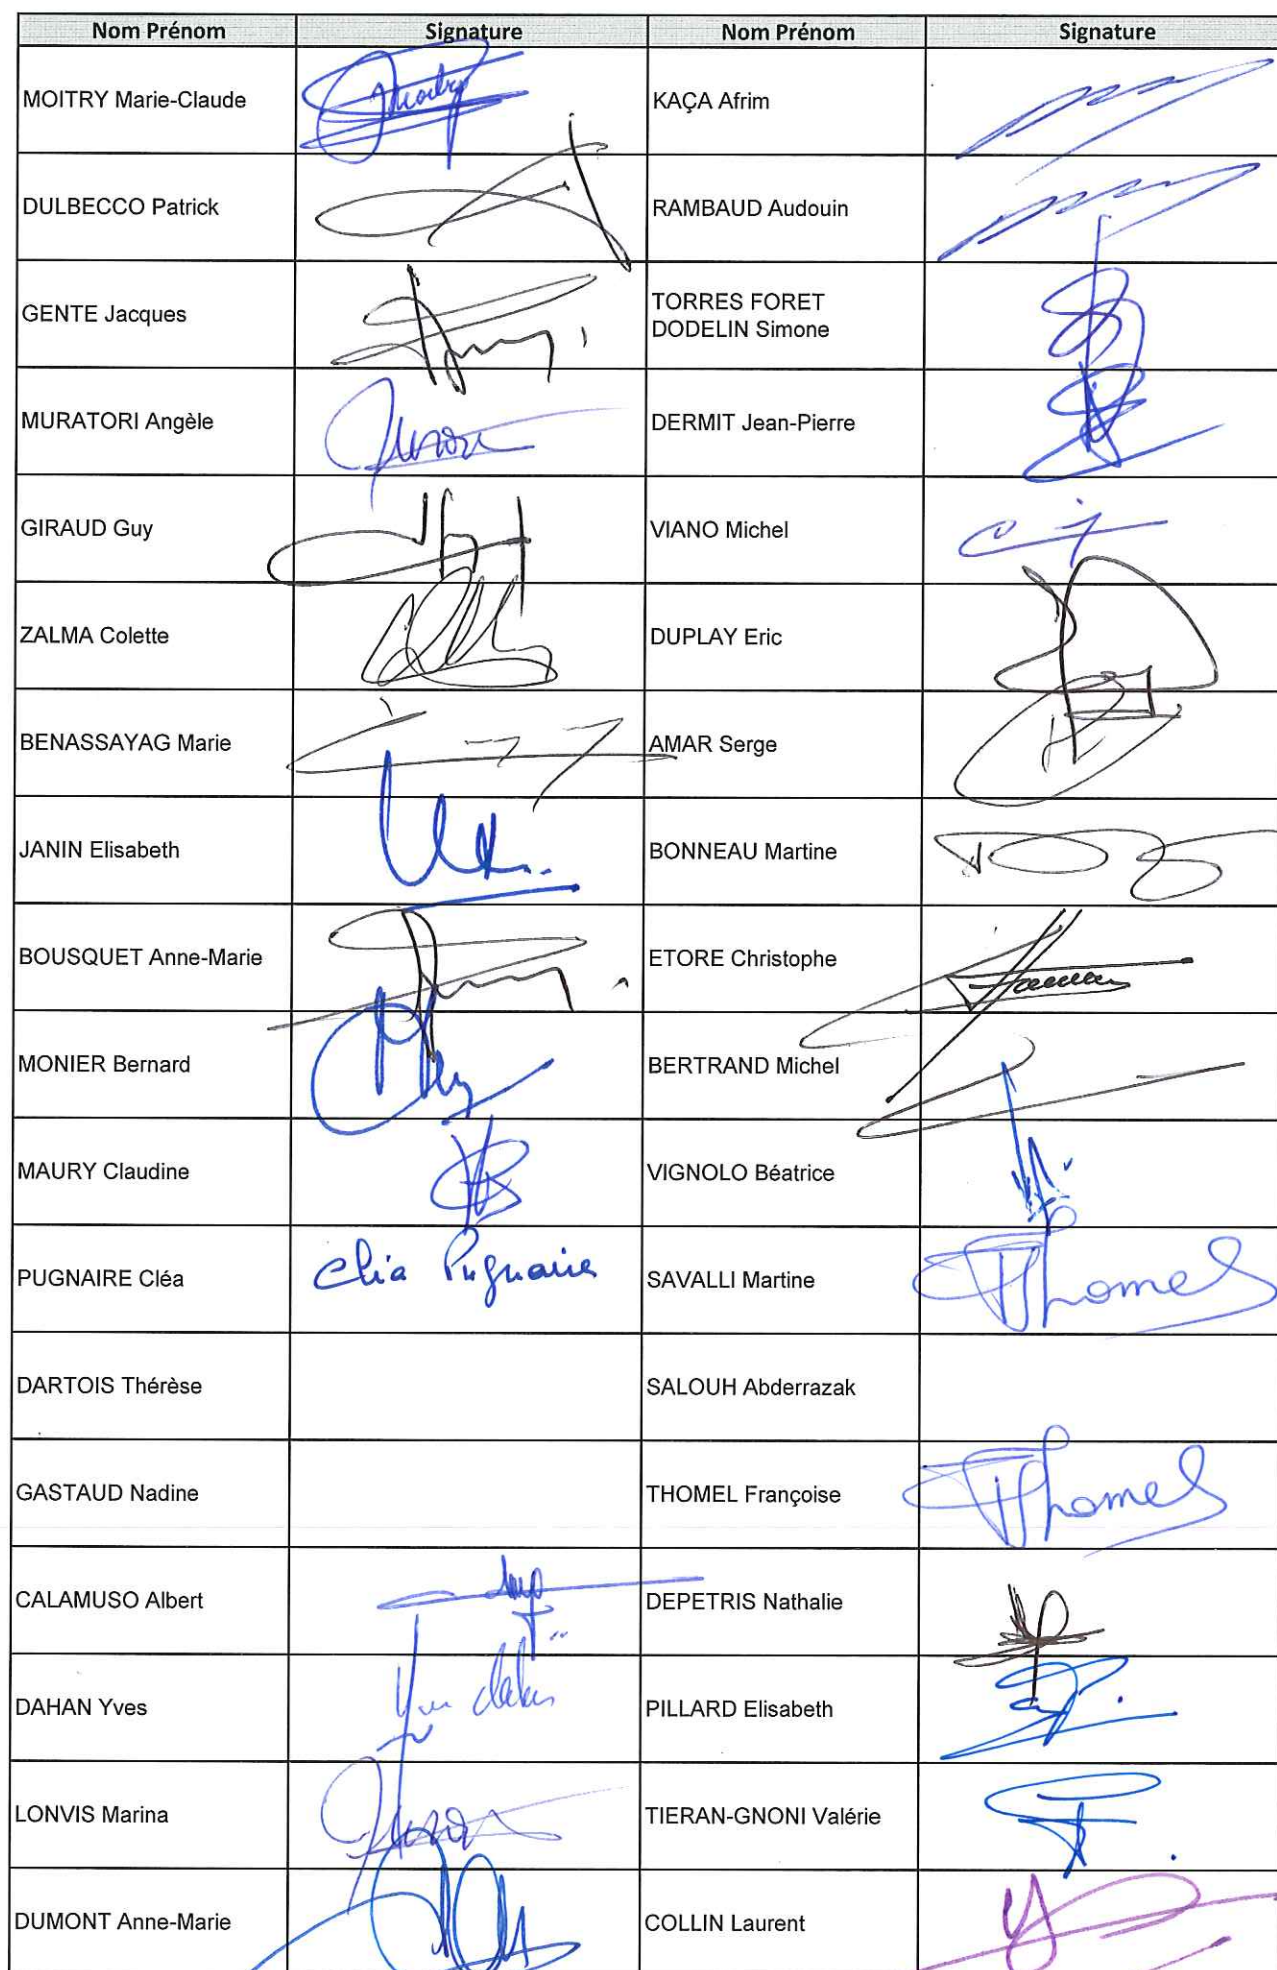 Nom Prénom Signature Nom Prénom Signature
MOITRY Marie-Claude KAÇA Afrim
DULBECCO Patrick RAMBAUD Audouin
GENTE Jacques TORRES FORET
DODELIN Simone
MURATORI Angèle DERMIT Jean-Pierre
GIRAUD Guy VIANO Michel
ZALMA Colette DUPLAY Eric
BENASSAYAG Marie AMAR Serge
JANIN Elisabeth BONNEAU Martine
BOUSQUET Anne-Marie ETORE Christophe
MONIER Bernard BERTRAND Michel
MAURY Claudine VIGNOLO Béatrice
PUGNAIRE Cléa Cléa Pugnaire SAVALLI Martine Thomel
DARTOIS Thérèse SALOUH Abderrazak
GASTAUD Nadine THOMEL Françoise Thomel
CALAMUSO Albert DEPETRIS Nathalie
DAHAN Yves Yves Dahan PILLARD Elisabeth
LONVIS Marina TIERAN-GNONI Valérie
DUMONT Anne-Marie COLLIN Laurent